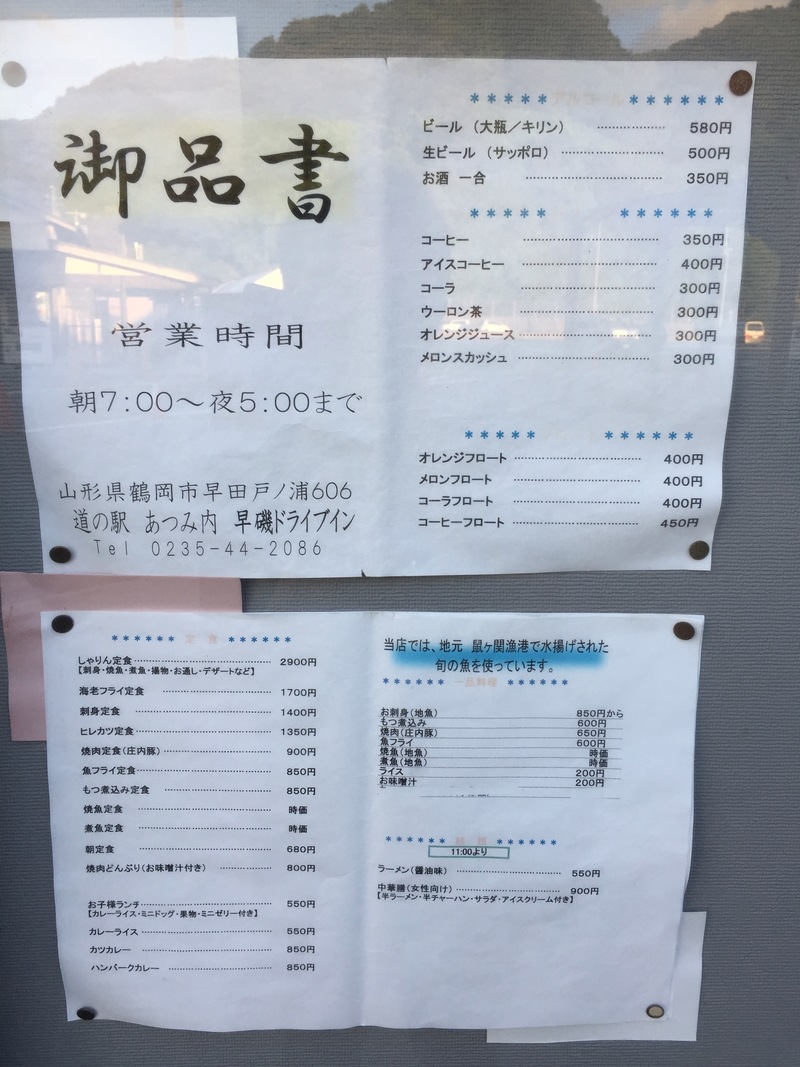 御品書
営業時間
朝7:00～夜5:00まで
山形県鶴岡市早田戸ノ浦606
道の駅 あつみ内 早磯ドライブイン
Tel 0235-44-2086
*****アルコール******
ビール (大瓶／キリン) ………… 580円
生ビール (サッポロ) ………… 500円
お酒 一合 ………… 350円
***** ******
コーヒー ………… 350円
アイスコーヒー ………… 400円
コーラ ………… 300円
ウーロン茶 ………… 300円
オレンジジュース ………… 300円
メロンスカッシュ ………… 300円
***** ******
オレンジフロート ………… 400円
メロンフロート ………… 400円
コーラフロート ………… 400円
コーヒーフロート ………… 450円
****** 定 食 ******
しゃりん定食 ………… 2900円
【刺身・焼魚・煮魚・揚物・お通し・デザートなど】
海老フライ定食 ………… 1700円
刺身定食 ………… 1400円
ヒレカツ定食 ………… 1350円
焼肉定食(庄内豚) ………… 900円
魚フライ定食 ………… 850円
もつ煮込み定食 ………… 850円
焼魚定食 ………… 時価
煮魚定食 ………… 時価
朝定食 ………… 680円
焼肉どんぶり(お味噌汁付き) ………… 800円
お子様ランチ ………… 550円
【カレーライス・ミニドッグ・果物・ミニゼリー付き】
カレーライス ………… 550円
カツカレー ………… 850円
ハンバークカレー ………… 850円
当店では、地元 鼠ヶ関漁港で水揚げされた
旬の魚を使っています。
****** 一品料理 ******
お刺身(地魚) 850円から
もつ煮込み 600円
焼肉(庄内豚) 650円
魚フライ 600円
焼魚(地魚) 時価
煮魚(地魚) 時価
ライス 200円
お味噌汁 200円
****** 麺 類 ******
11:00より
ラーメン(醤油味) ………… 550円
中華膳(女性向け) ………… 900円
【半ラーメン・半チャーハン・サラダ・アイスクリーム付き】